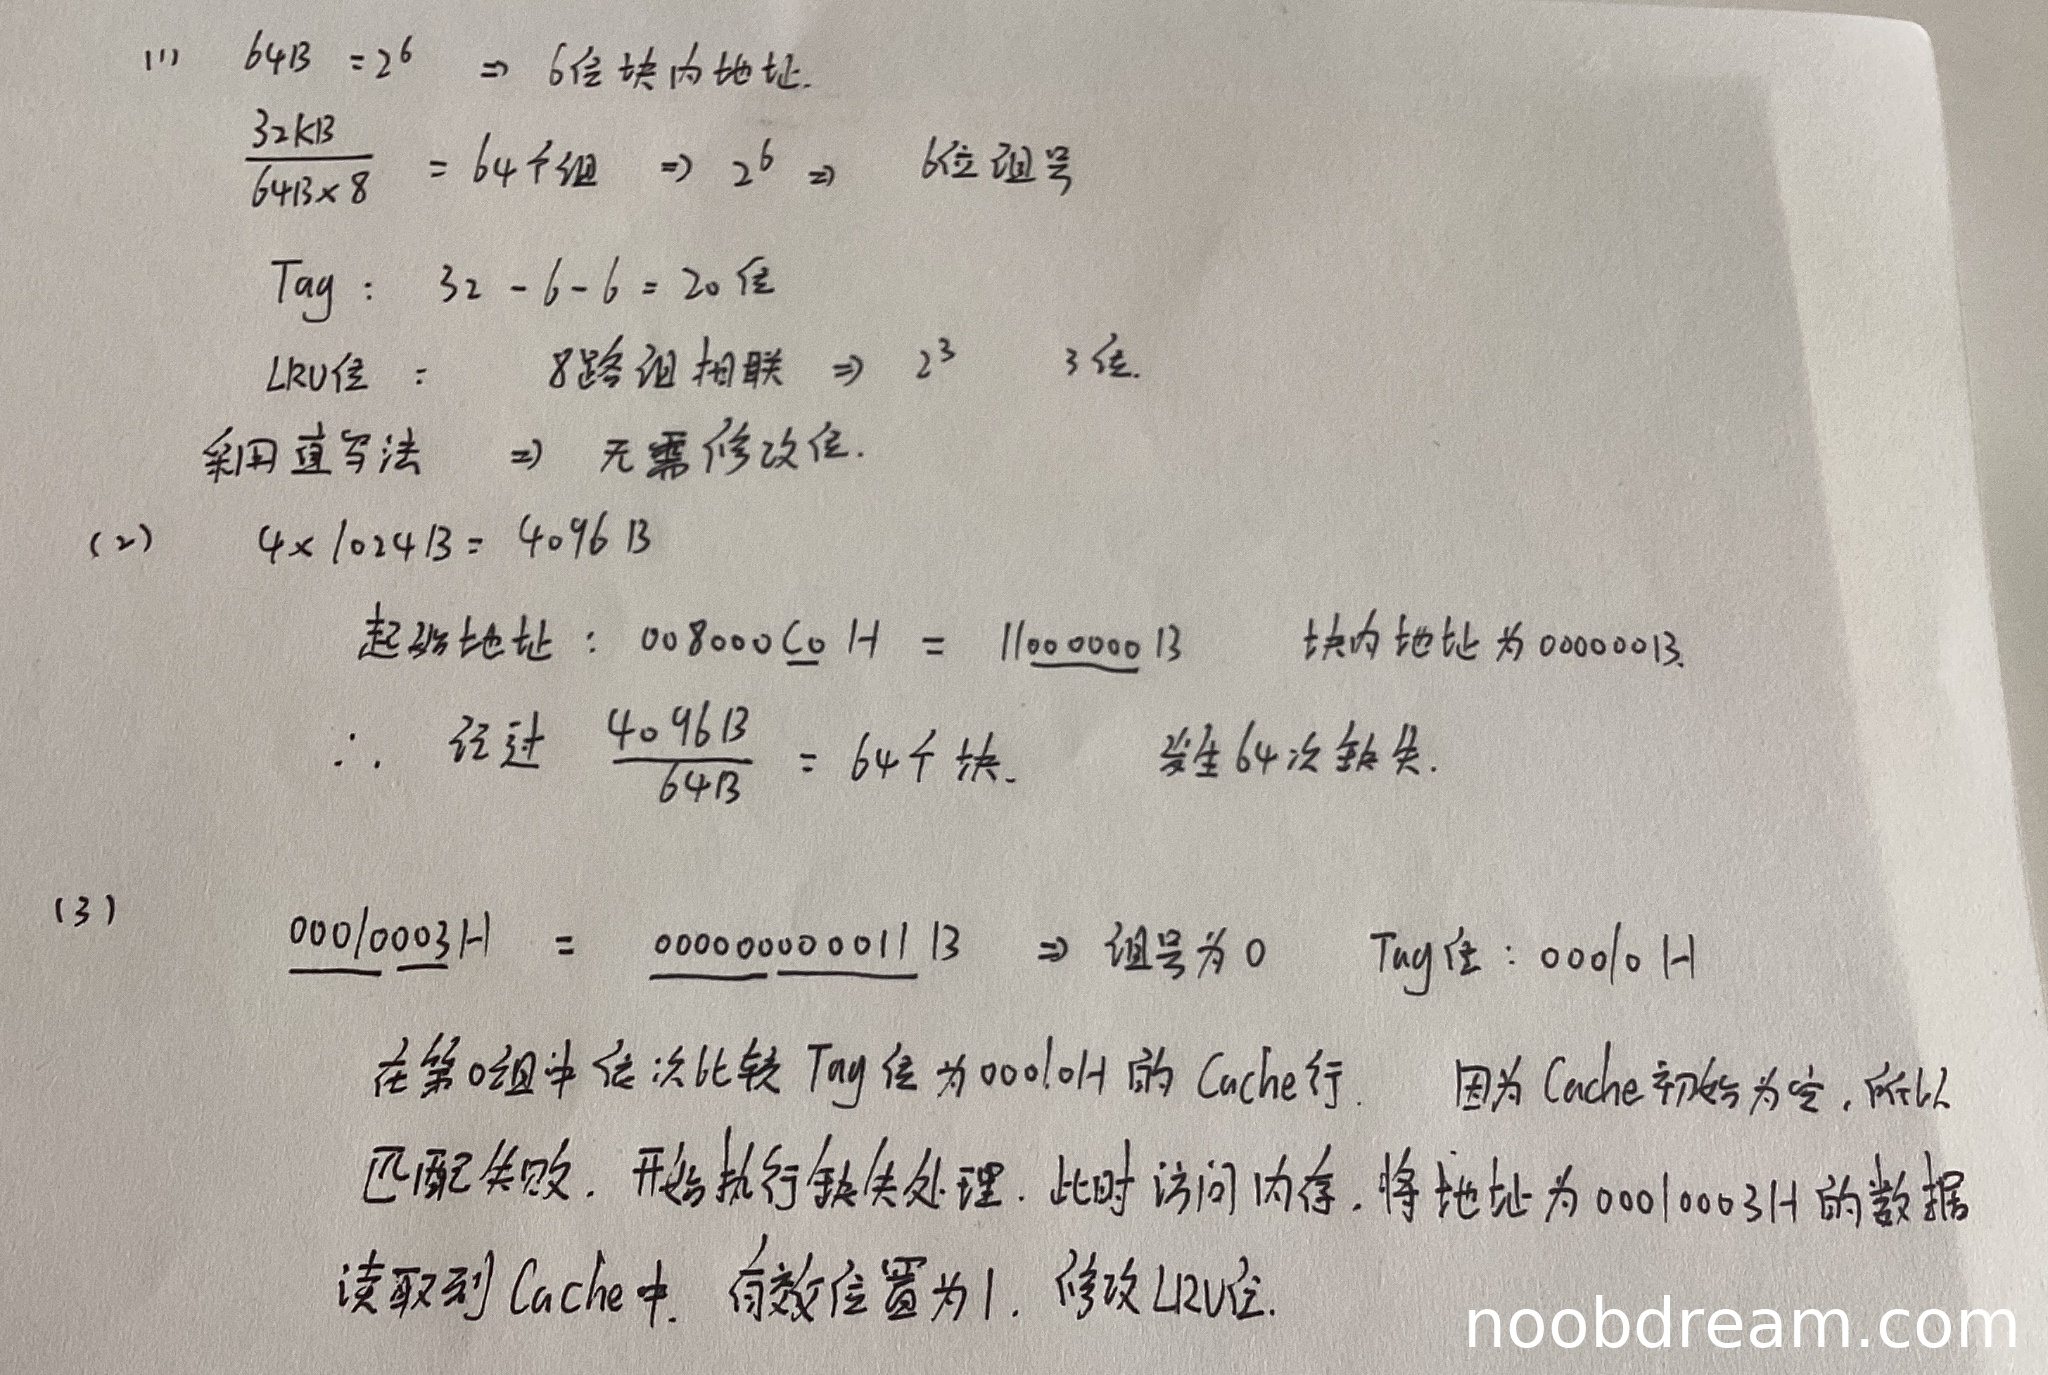 (1) 64B = 2^6 ⇒ 6位块内地址.
32KB / 64B×8 = 64个组 ⇒ 2^6 ⇒ 6位组号
Tag: 32 - 6 - 6 = 20位
LRU位: 8路组相联 ⇒ 2^3 3位.
采用直写法 ⇒ 无需修改位.
(2) 4×1024B = 4096B
起始地址: 008000C0H = 11000000B 块内地址为000000B.
∴ 经过 4096B / 64B = 64个块. 发生64次缺失.
(3) 00010003H = 000000000011B ⇒ 组号为0 Tag位: 00010H
在第0组中依次比较Tag位为00010H的Cache行. 因为Cache初始为空,所以
匹配失败. 开始执行缺失处理. 此时访问内存. 将地址为00010003H的数据
读取到Cache中. 有效位置为1. 修改LRU位.
noobdream.com